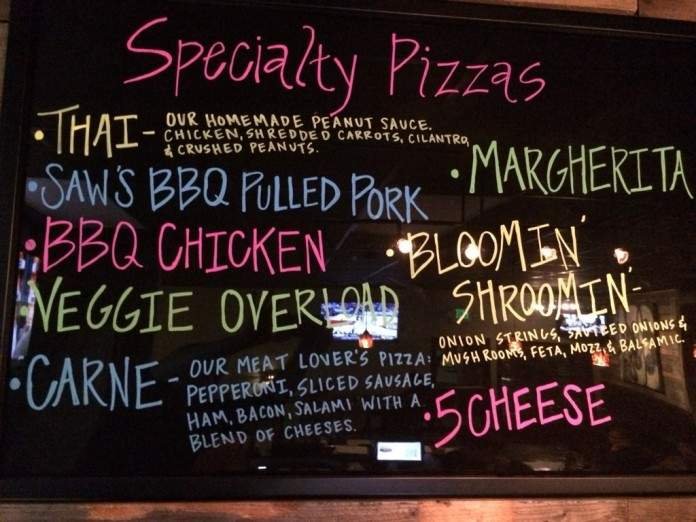 Specialty Pizzas
• THAI - OUR HOMEMADE PEANUT SAUCE.
CHICKEN, SHREDDED CARROTS, CILANTRO,
& CRUSHED PEANUTS.
• SAW'S BBQ PULLED PORK
• BBQ CHICKEN
• VEGGIE OVERLOAD
• CARNE - OUR MEAT LOVER'S PIZZA:
PEPPERONI, SLICED SAUSAGE,
HAM, BACON, SALAMI WITH A
BLEND OF CHEESES.
• MARGHERITA
• BLOOMIN'
SHROOMIN'-
ONION STRINGS, SAUTEED ONIONS &
MUSHROOMS, FETA, MOZZ, & BALSAMIC.
• 5 CHEESE